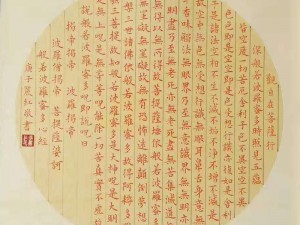 觀自在菩薩行
深般若波羅蜜多時照見五蘊
皆空度一切苦厄舍利子色不異空空不異
色色即是空空即是色受想行識亦復如是舍利
子是諸法空相不生不滅不垢不淨不增不減是
故空中無色無受想行識無眼耳鼻舌身意無色聲
香味觸法無眼界乃至無意識界無無明亦
無無明盡乃至無老死亦無老死盡無苦集滅道
無智亦無得以無所得故菩提薩埵依般若波羅蜜多
故心無罣礙無罣礙故無有恐怖遠離顛倒夢想
究竟涅槃三世諸佛依般若波羅蜜多故得阿耨多羅
三藐三菩提故知般若波羅蜜多是大神咒是大明
咒是無上咒是無等等咒能除一切苦真實不虛故
說般若波羅蜜多咒即說咒曰
揭帝揭帝 波羅揭帝
波羅僧揭帝 菩提薩婆訶
般若波羅蜜多心經
庚子 敬書